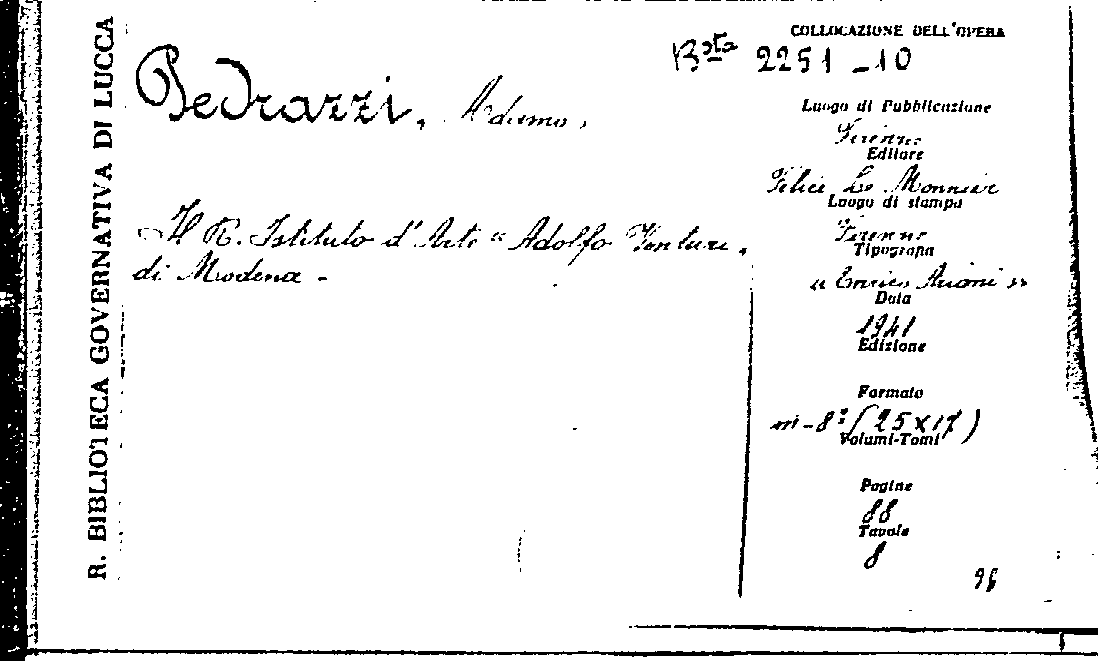 R. BIBLIOTECA GOVERNATIVA DI LUCCA
Pedrazzi, Adamo,
Il R. Istituto d'Arte "Adolfo Venturi"
di Modena -
COLLOCAZIONE DELL'OPERA
Bsta 2251-10
Luogo di Pubblicazione
Firenze
Editore
Felice Le Monnier
Luogo di stampa
Firenze
Tipografia
"Enrico Ariani"
Data
1941
Edizione
Formato
in-8º (25x17)
Volumi-Tomi
Pagine
88
Tavole
8
96